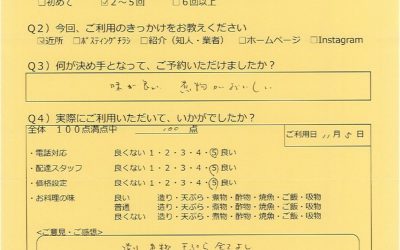 □初めて ☑2～5回 □6回以上
Q2）今回、ご利用のきっかけをお教えください
☑近所 □ﾎﾟｽﾃｨﾝｸﾞﾁﾗｼ □紹介（知人・業者） □ホームページ □Instagram
Q3）何が決め手となって、ご予約いただけましたか？
味が良い 煮物がおいしい
Q4）実際にご利用いただいて、いかがでしたか？
全体 100点満点中 100 点
ご利用日 11月5日
・電話対応 良くない 1・2・3・4・5 良い
・配達スタッフ 良くない 1・2・3・4・5 良い
・価格設定 良くない 1・2・3・4・5 良い
・お料理の味 良い 造り・天ぷら・煮物・酢物・焼魚・ご飯・吸物
普通 造り・天ぷら・煮物・酢物・焼魚・ご飯・吸物
良くない 造り・天ぷら・煮物・酢物・焼魚・ご飯・吸物
＜ご意見・ご感想＞
造り 煮物 天ぷら